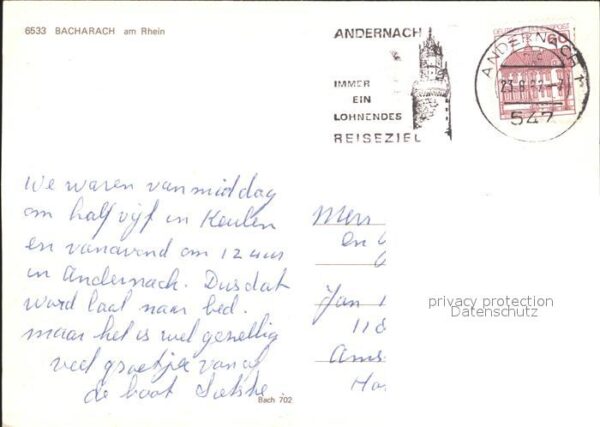 6533 BACHARACH am Rhein
ANDERNACH
IMMER
EIN
LOHNENDES
REISEZIEL
DEUTSCHE BUNDESPOST
60
ANDERNACH 1
23.8.
547
We waren van middag
om half vijf in Keulen
en vanavond om 12 uur
in Andernach. Dus dat
word laat naar bed.
maar het is wel gezellig
veel groetjes vanaf
de boot
Bach 702
en
Jan
118
Ams
privacy protection
Datenschutz